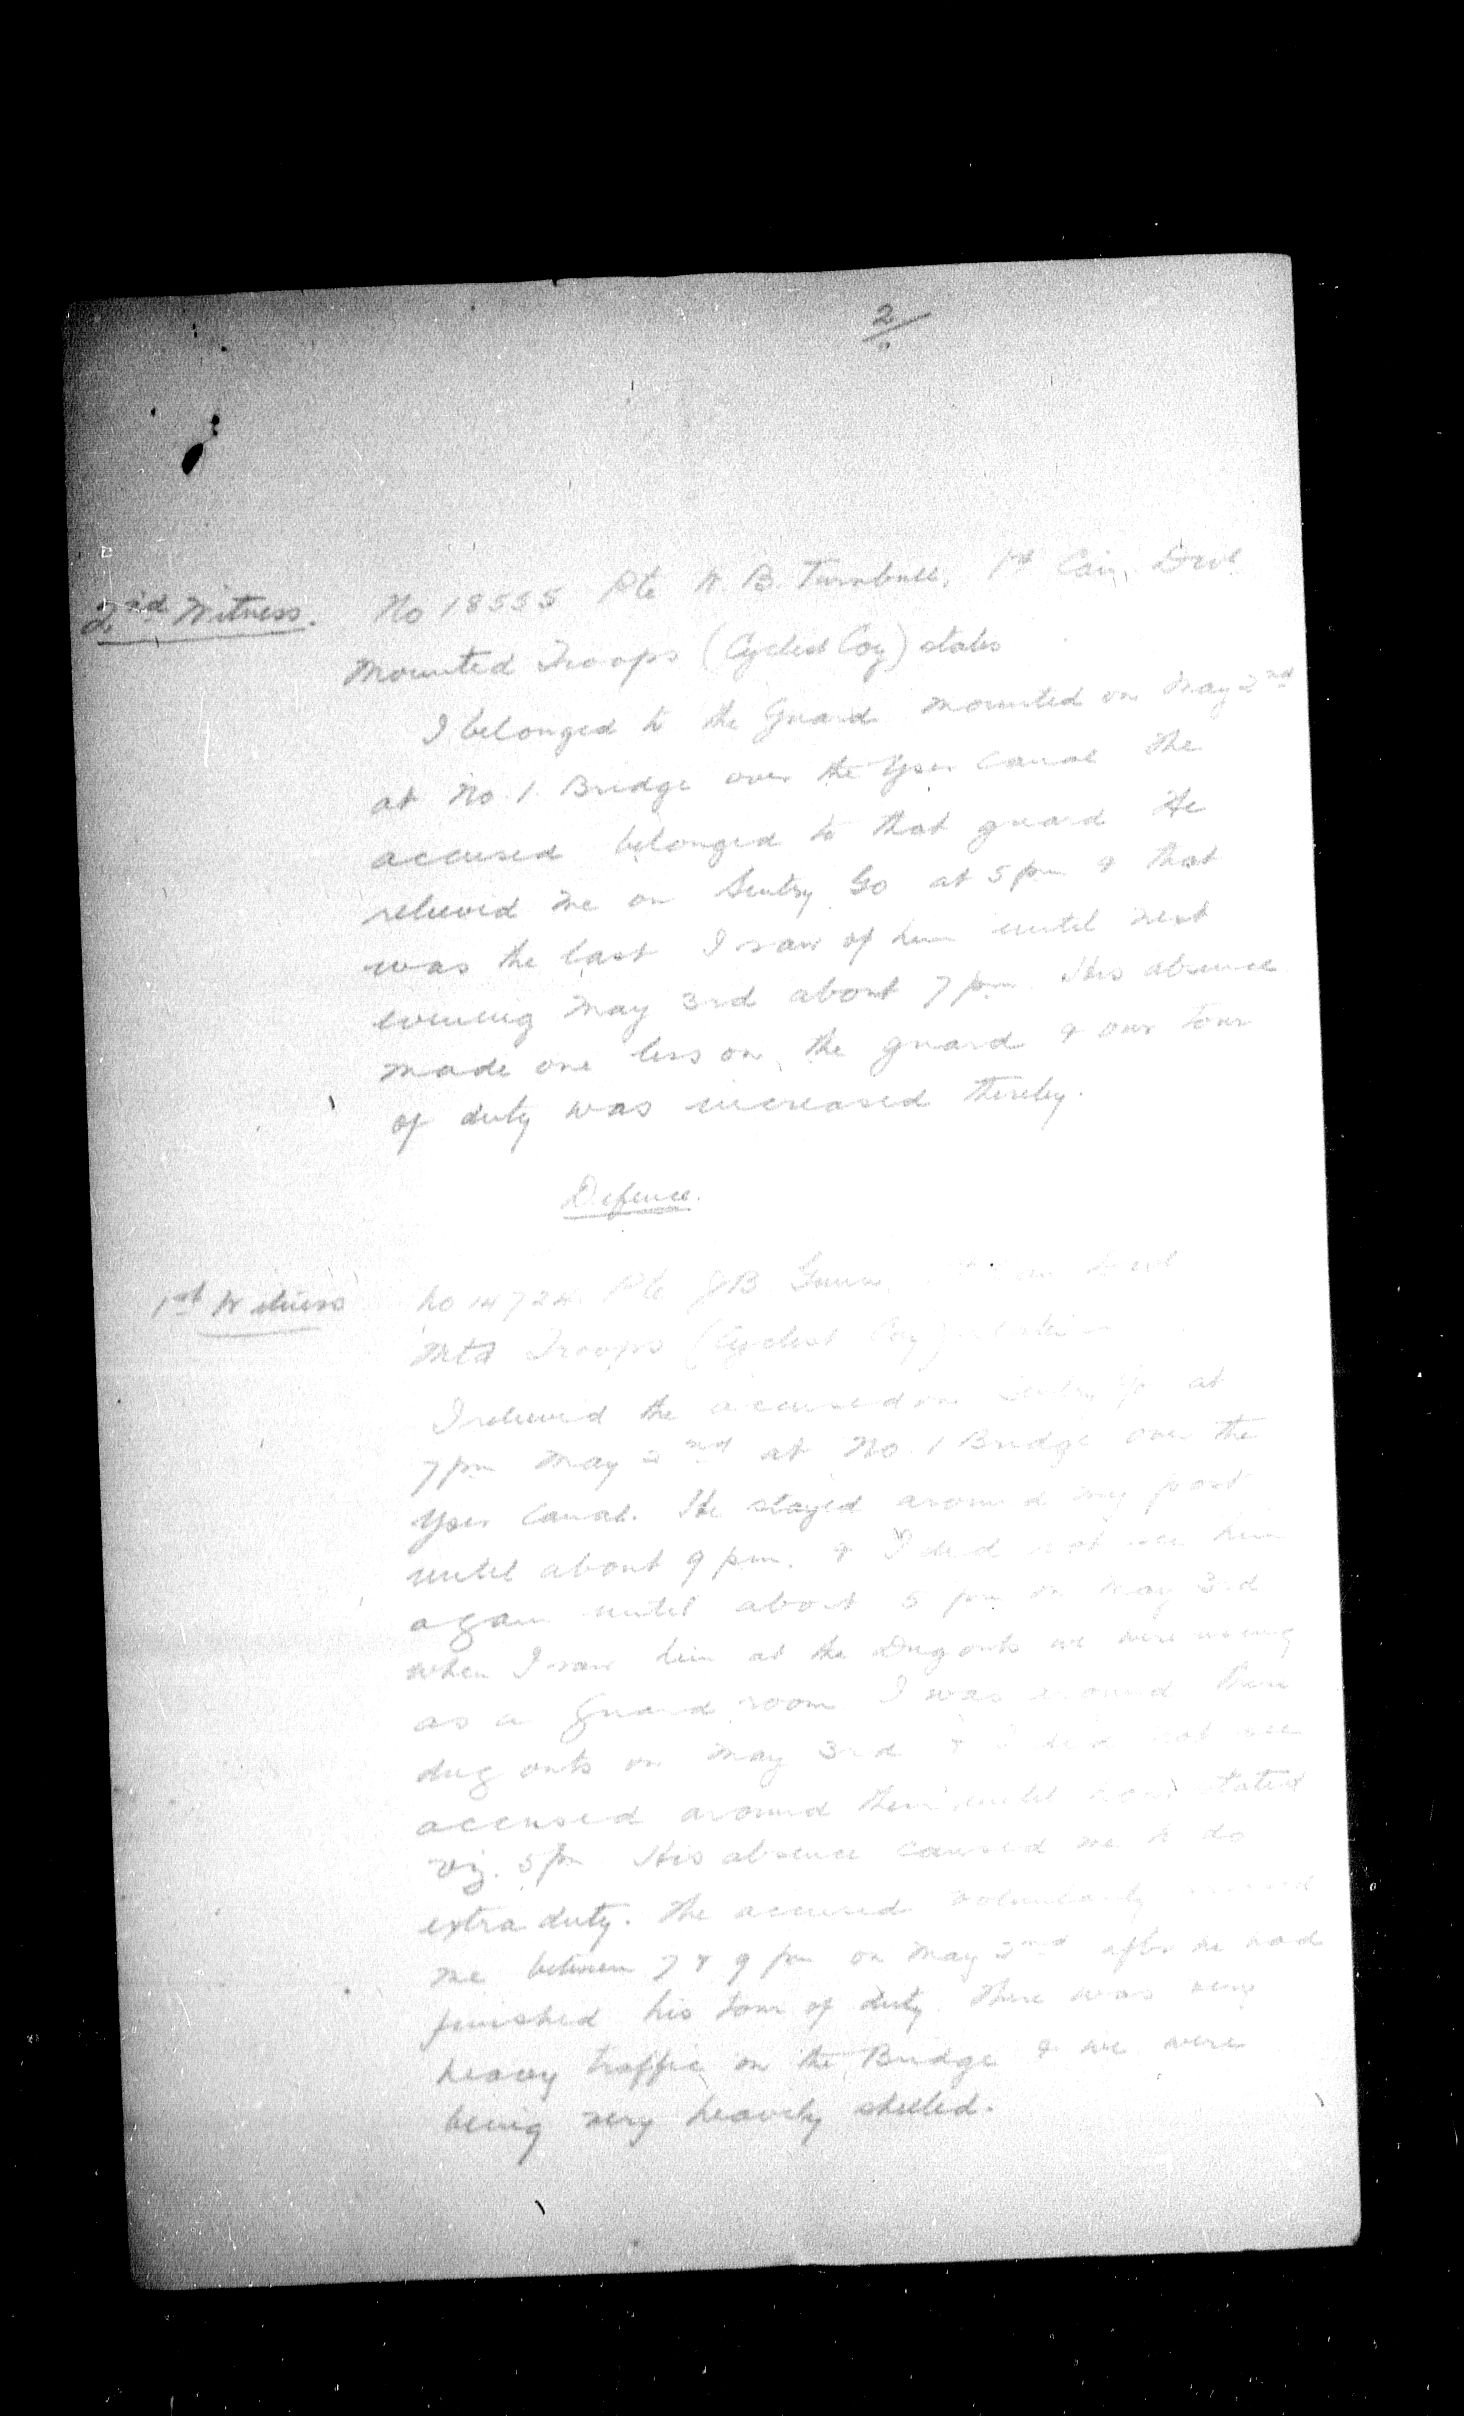 2/
2nd Witness. No 18555 Pte W. B. Turnbull, 1st Can. Divl
Mounted Troops (Cyclist Coy) states
I belonged to the Guard mounted on May 2nd
at No. 1 Bridge over the Yser Canal The
accused belonged to that guard He
relieved me on Sentry Go at 5 pm & that
was the last I saw of him until next
evening May 3rd about 7 pm. His absence
made one less on the guard & our tour
of duty was increased thereby.
Defence.
1st Witness No 14724 Pte J B Gunn
Mtd Troops (Cyclist Coy)
I relieved the accused on Sentry Go at
7 pm May 2nd at No. 1 Bridge over the
Yser Canal. He stayed around my post
until about 9 pm. & I did not see him
again until about 5 pm on May 3rd
when I saw him at the Dug outs we were using
as a Guard room I was around
dug outs on May 3rd & I did not see
accused around them until hour stated
viz. 5 pm His absence caused me to do
extra duty. The accused voluntarily
me between 7 & 9 pm on May 2nd after he had
finished his tour of duty. There was very
heavy traffic on the Bridge & we were
being very heavily shelled.